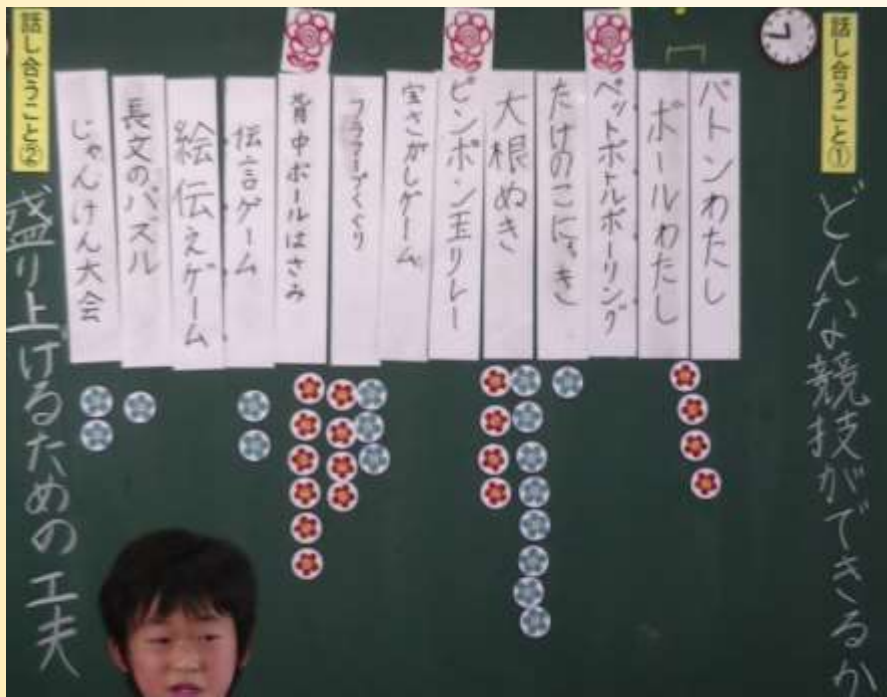 話し合うこと①
どんな競技ができるか
バトンわたし
ボールわたし
ペットボトルボーリング
たけのこにょき
大根ぬき
ピンポン玉リレー
宝さがしゲーム
フラフープくぐり
背中ボールはさみ
伝言ゲーム
絵伝えゲーム
長文のパズル
じゃんけん大会
話し合うこと②
盛り上げるための工夫